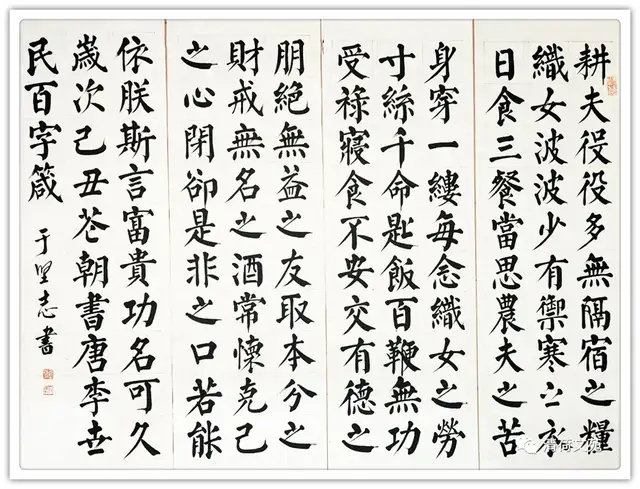 耕夫役役多無隔宿之糧
織女波波少有禦寒之衣
日食三餐當思農夫之苦
身穿一縷每念織女之勞
寸絲千命匙飯百鞭無功
受祿寢食不安交有德之
朋絕無益之友取本分之
財戒無名之酒常懷克己
之心閉卻是非之口若能
依朕斯言富貴功名可久
歲次己丑花朝書唐李世
民百字箴
于志書